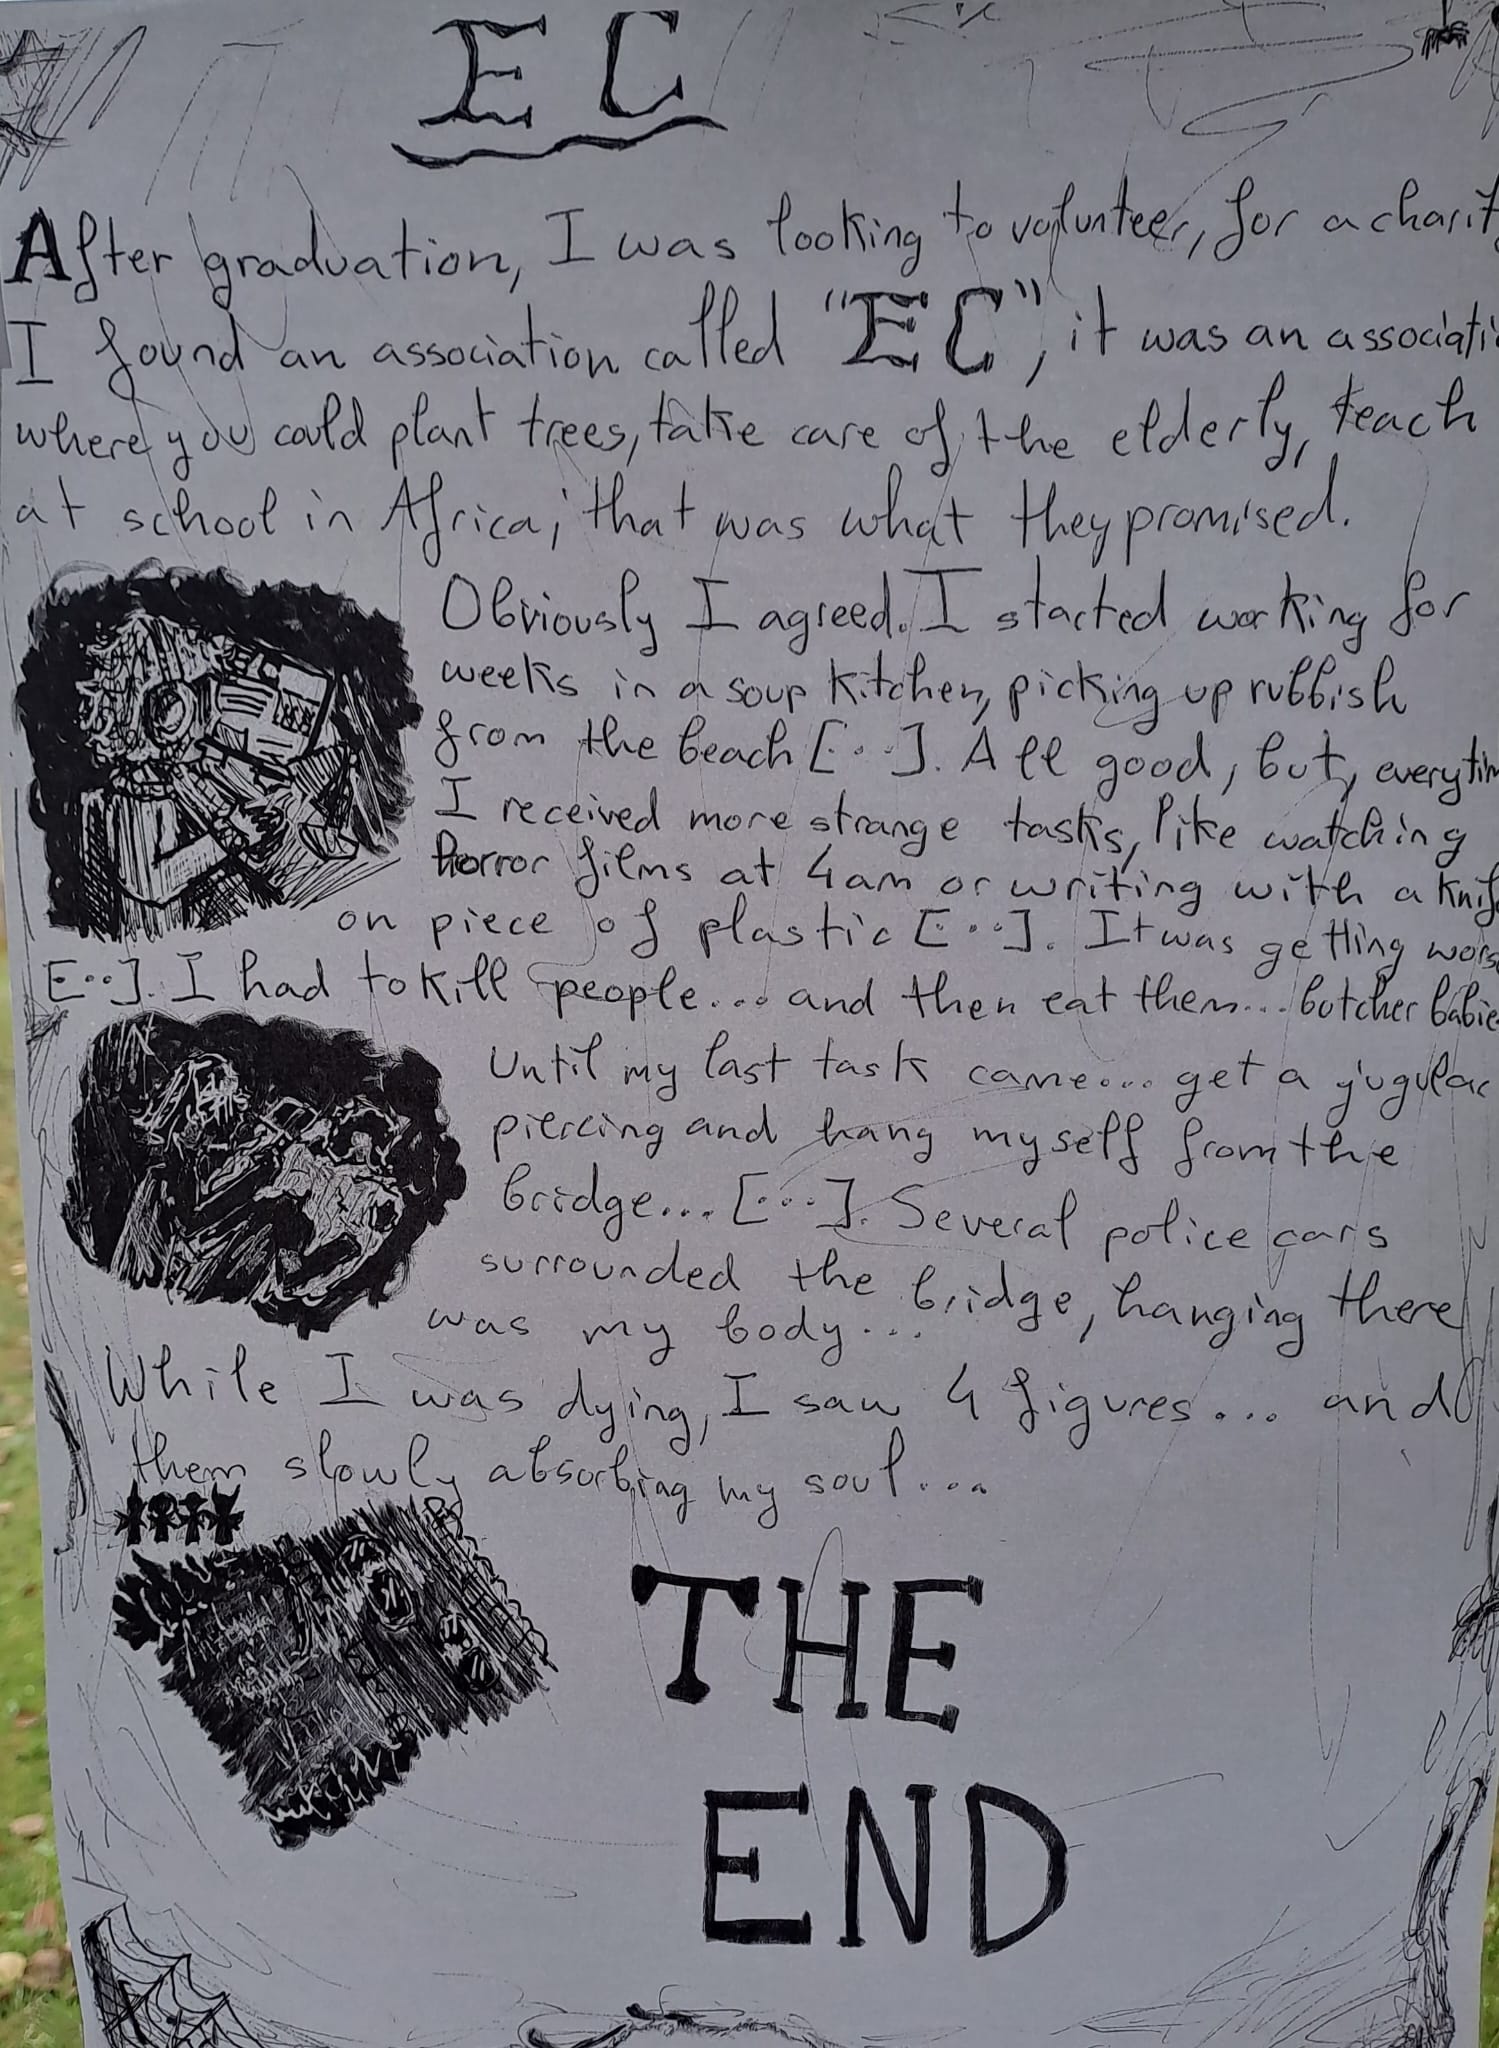 EC
After graduation, I was looking to volunteer, for a charit
I found an association called "EC", it was an associati
where you could plant trees, take care of the elderly, teach
at school in Africa; that was what they promised.
Obviously I agreed. I started working for
weeks in a soup kitchen, picking up rubbish
from the beach [...]. All good, but, everytim
I received more strange tasks, like watching
horror films at 4 am or writing with a knif
on piece of plastic [...]. It was getting wors
[...]. I had to kill people... and then eat them... butcher babie
Until my last task came... get a yugular
piercing and hang myself from the
bridge... [...]. Several police cars
surrounded the bridge, hanging there
was my body...
While I was dying, I saw 4 figures... and
them slowly absorbing my soul...
THE
END